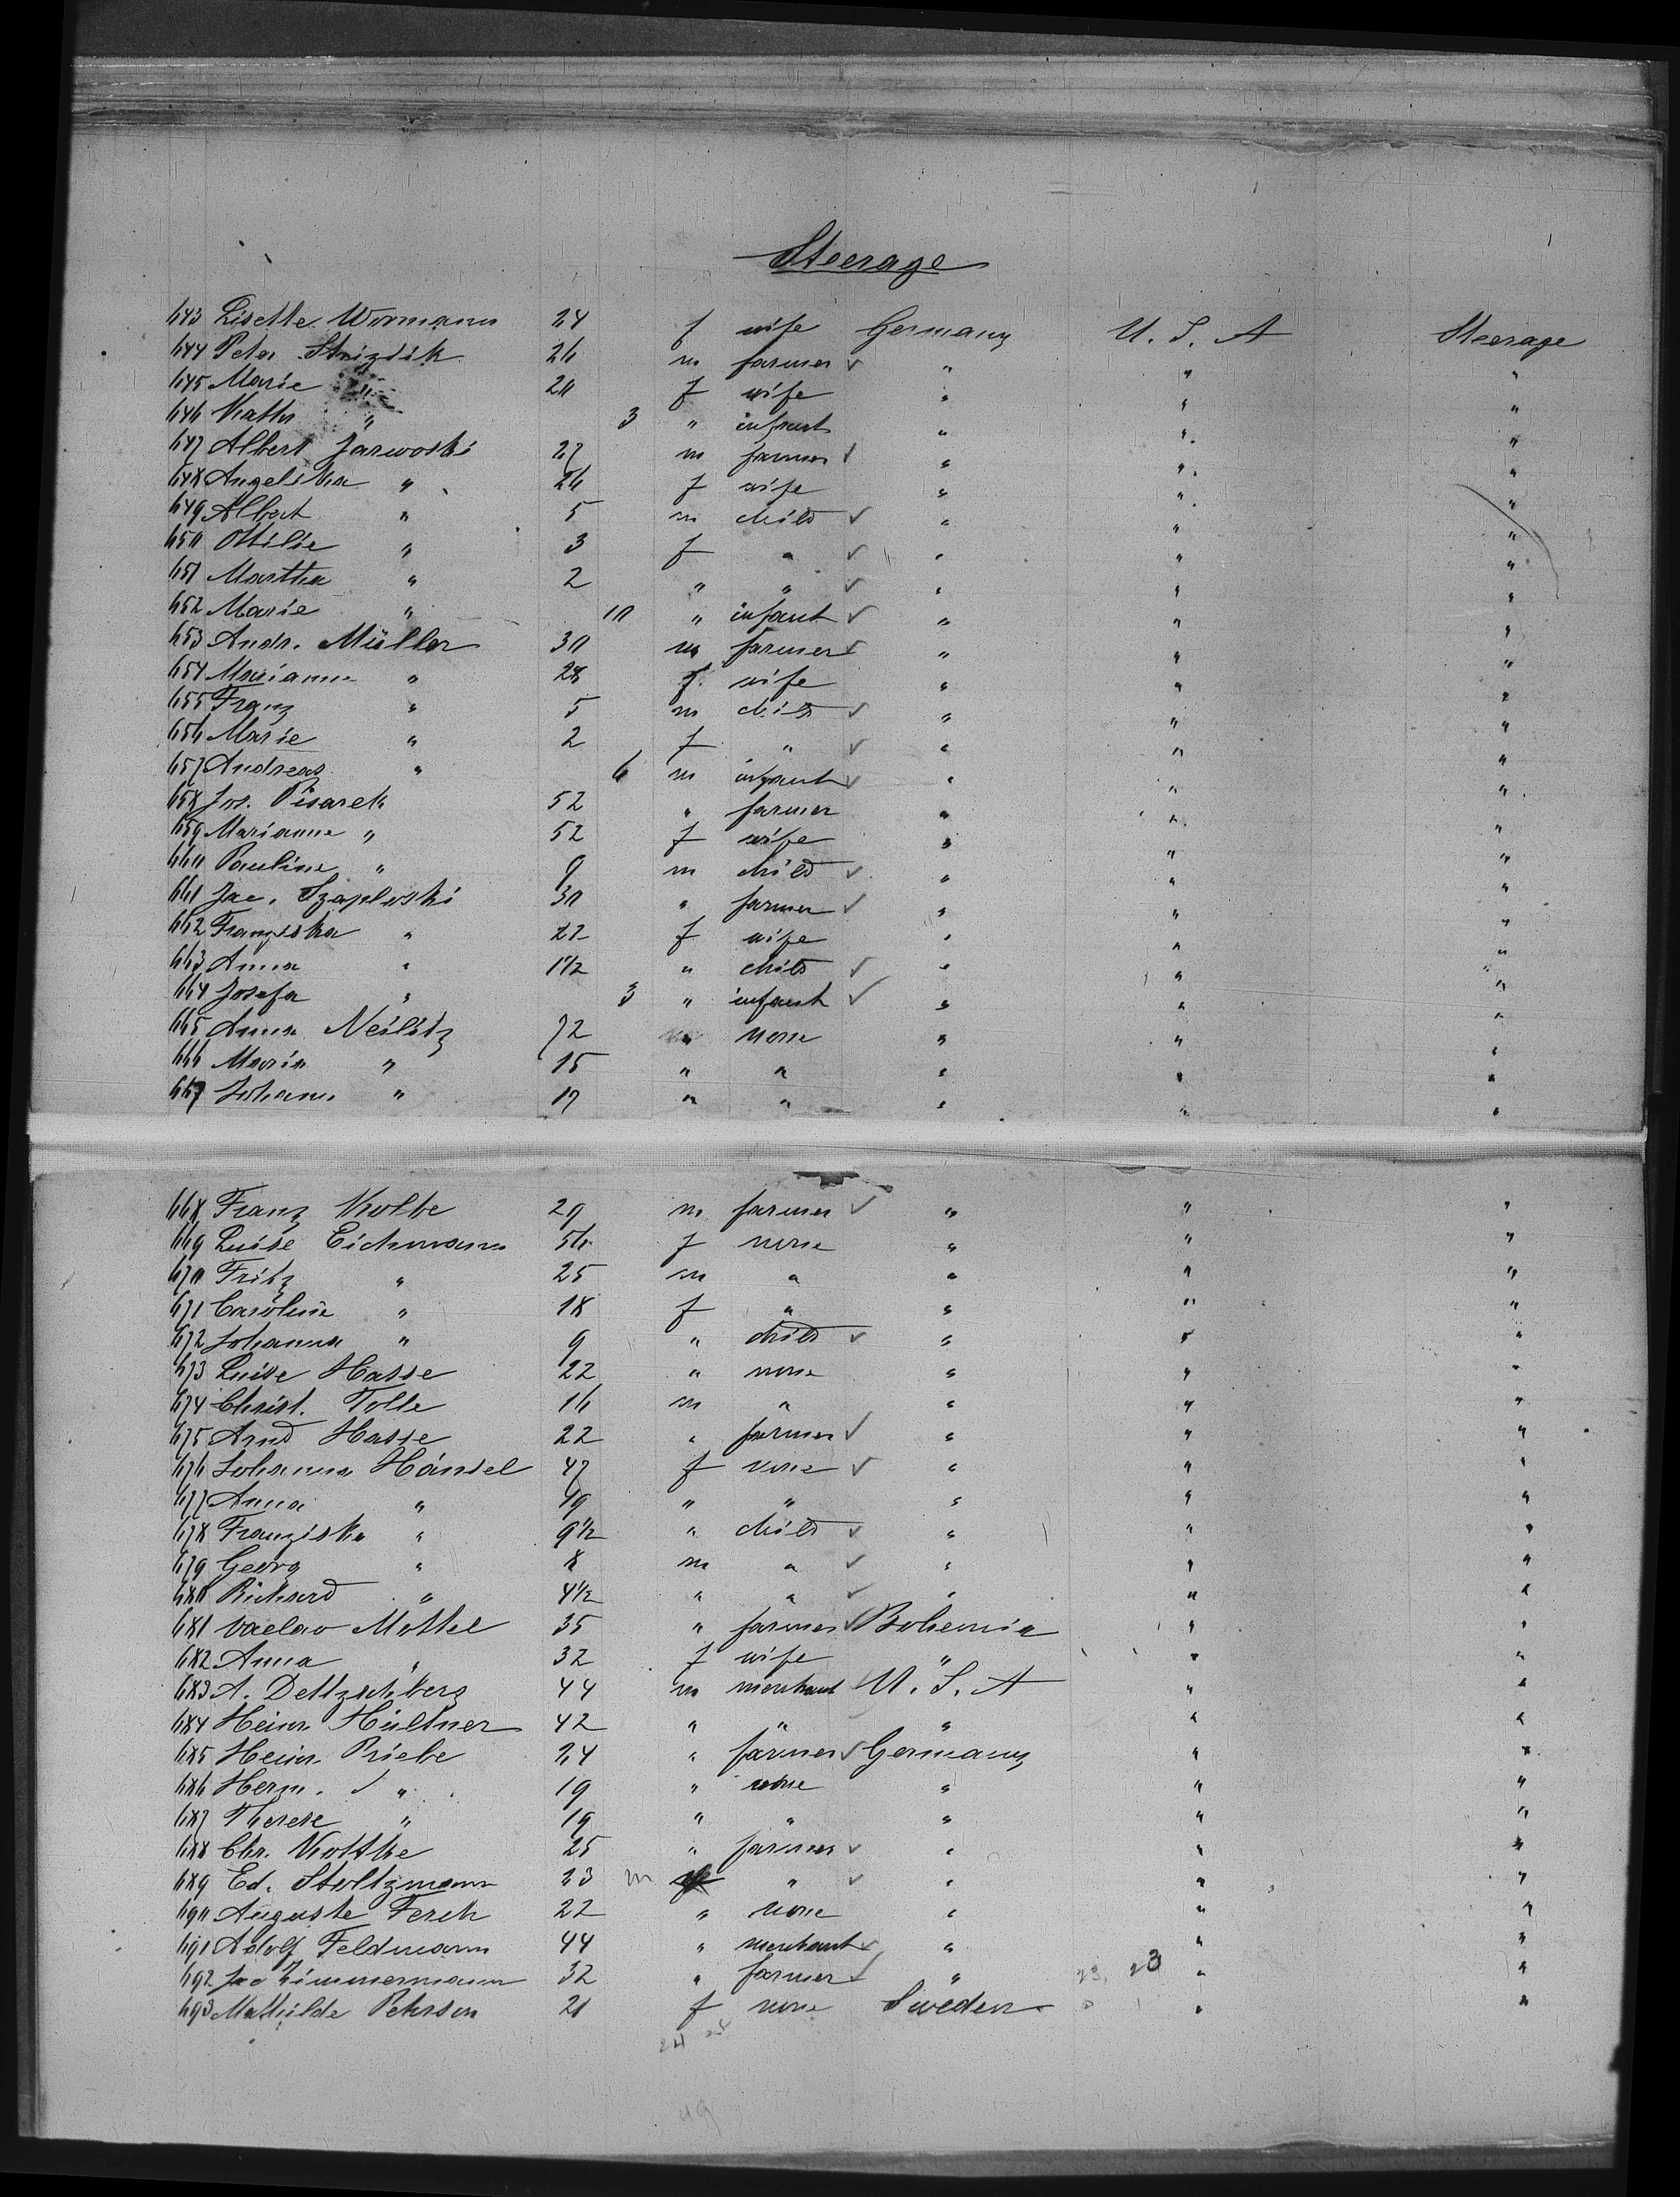 Steerage
643 Lisette Wormann 24 f wife Germany U. S. A Steerage
644 Peter Strizdik 26 m farmer ✓ " " "
645 Marie " 20 f wife " " "
646 Kath " 3 " infant " " "
647 Albert Jarwoski 27 m farmer ✓ " " "
648 Angelika " 26 f wife " " "
649 Albert " 5 m child ✓ " " "
650 Ottilie " 3 f " ✓ " " "
651 Martha " 2 " " ✓ " " "
652 Marie " 10 " infant ✓ " " "
653 Andr. Müller 30 m farmer ✓ " " "
654 Marianne " 28 f wife " " "
655 Franz " 5 m child ✓ " " "
656 Marie " 2 f " ✓ " " "
657 Andreas " 6 m infant ✓ " " "
658 Jos. Pisarek 52 " farmer " " "
659 Marianne " 52 f wife " " "
660 Pauline " 9 m child ✓ " " "
661 Jac. Szapleski 30 " farmer ✓ " " "
662 Franziska " 22 f wife " " "
663 Anna " 1 1/2 " child ✓ " " "
664 Josefa " 3 " infant ✓ " " "
665 Anna Neilitz 72 " none " " "
666 Maria " 15 " " " " "
667 Johann " 17 " " " " "
668 Franz Kolbe 29 m farmer ✓ " " "
669 Luise Eichmann 56 f none " " "
670 Fritz " 25 m " " " "
671 Caroline " 18 f " " " "
672 Johanna " 9 " child ✓ " " "
673 Luise Hasse 22 " none " " "
674 Christ. Tolle 16 m " " " "
675 Arnd Hasse 22 " farmer ✓ " " "
676 Johanna Hänsel 47 f none ✓ " " "
677 Anna " 19 " " " " "
678 Franziska " 9 1/2 " child ✓ " " "
679 Georg " 8 m " ✓ " " "
680 Richard " 4 1/2 " " ✓ " " "
681 Vaclav Mottel 35 " farmer ✓ Bohemia " "
682 Anna " 32 f wife " " "
683 A. Deltzschberg 44 m merchant U. S. A " "
684 Heinr. Hültner 42 " " " " "
685 Heinr. Priebe 24 " farmer ✓ Germany " "
686 Herm. " 19 " none " " "
687 Therese " 19 " " " " "
688 Chr. Kottke 25 " farmer ✓ " " "
689 Ed. Stoltzmann 23 m " ✓ " " "
690 Auguste Ferch 22 " none " " "
691 Adolf Feldmann 44 " merchant ✓ " " "
692 Jac Zimmermann 32 " farmer ✓ " 23, 23 " "
693 Mathilde Pehrson 21 f none Sweden " "
24 25
49